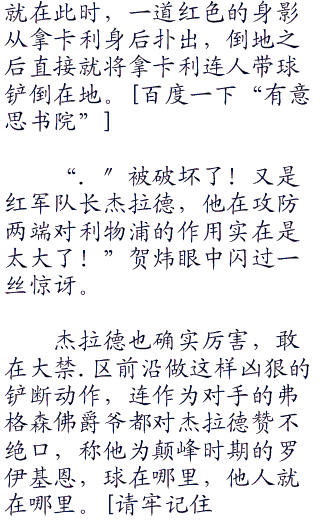 就在此时，一道红色的身影
从拿卡利身后扑出，倒地之
后直接就将拿卡利连人带球
铲倒在地。[百度一下“有意
思书院”]
“．〞被破坏了！又是
红军队长杰拉德，他在攻防
两端对利物浦的作用实在是
太大了！”贺炜眼中闪过一
丝惊讶。
杰拉德也确实厉害，敢
在大禁.区前沿做这样凶狠的
铲断动作，连作为对手的弗
格森佛爵爷都对杰拉德赞不
绝口，称他为颠峰时期的罗
伊基恩，球在哪里，他人就
在哪里。[请牢记住